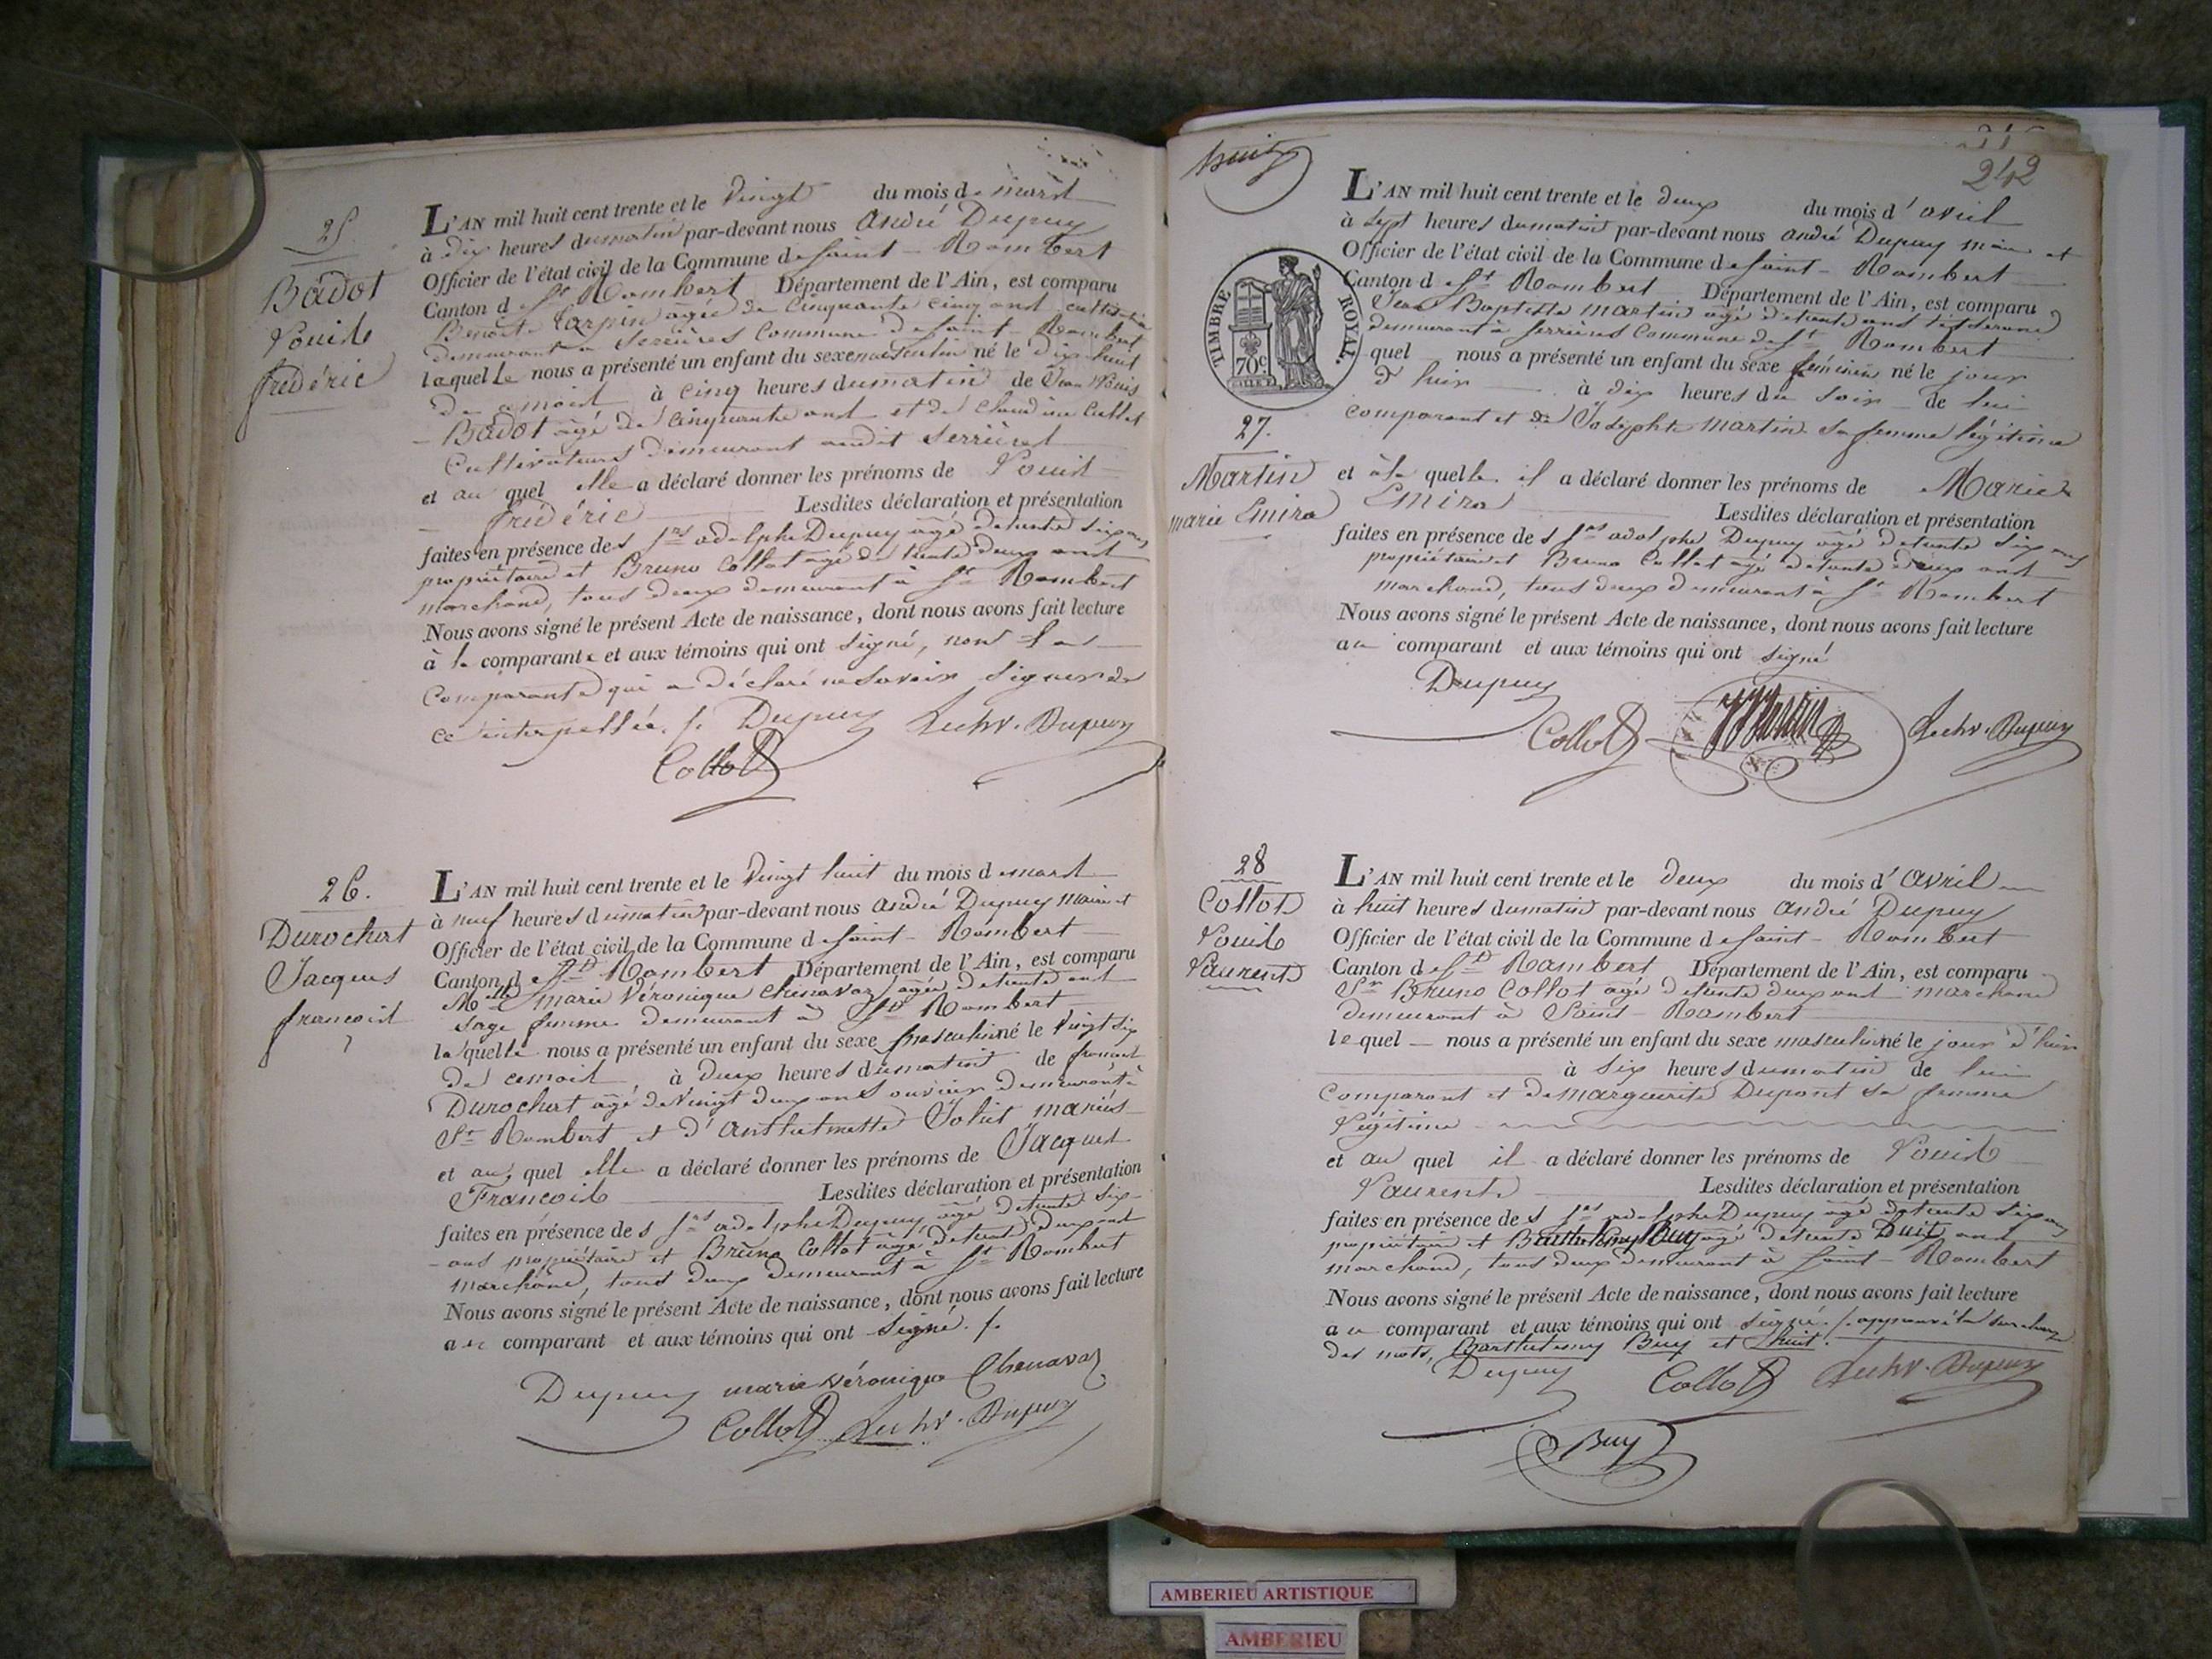 25
Badot
Louis
frédéric
L'AN mil huit cent trente et le Vingt du mois de mars
à dix heures du matin par-devant nous André Dupuy
Officier de l'état civil de la Commune de saint-Rambert
Canton de St Rambert Département de l'Ain, est comparu
Benoîte Carpin agée de Cinquante cinq ans cultivatrice
demeurant a Serrières Commune de saint-Rambert
laquelle nous a présenté un enfant du sexe masculin né le dix huit
de ce mois à cinq heures du matin de Jean Louis
Badot âgé de cinquante ans et de Claudine Cullet
Cultivateurs demeurant audit Serrières
et au quel elle a déclaré donner les prénoms de Louis
frédéric Lesdites déclaration et présentation
faites en présence des srs adolphe Dupuy agé de trente six ans
propriétaire et Bruno Collot âgé de trente deux ans
marchand, tous deux demeurant à St Rambert
Nous avons signé le présent Acte de naissance, dont nous avons fait lecture
à la comparante et aux témoins qui ont signé, non la
Comparante qui a déclaré ne savoir signer de
ce interpellée. /. Dupuy Dupuy
Collot
26.
Durochat
Jacques
françois
L'AN mil huit cent trente et le Vingt huit du mois de mars
à neuf heures du matin par-devant nous André Dupuy maire et
Officier de l'état civil de la Commune de saint-Rambert
Canton de St Rambert Département de l'Ain, est comparu
Melle marie Véronique Chenavaz agée de trente ans
sage femme demeurant à St Rambert
laquelle nous a présenté un enfant du sexe masculin né le Vingt six
de ce mois à deux heures du matin de françois
Durochat âgé de Vingt deux ans ouvrier demeurant à
St Rambert et d'Anthelmette Joliet mariés
et au quel elle a déclaré donner les prénoms de Jacques
François Lesdites déclaration et présentation
faites en présence des srs adolphe Dupuy agé de trente six
ans propriétaire et Bruno Collot agé de trente deux ans
marchand, tous deux demeurant à St Rambert
Nous avons signé le présent Acte de naissance, dont nous avons fait lecture
au comparant et aux témoins qui ont signé. /.
Dupuy marie véronique Chenavaz
Collot Dupuy
huit
242
TIMBRE ROYAL.
70c
27.
Martin
marie Emira
L'AN mil huit cent trente et le deux du mois d'avril
à sept heures du matin par-devant nous André Dupuy maire et
Officier de l'état civil de la Commune de saint-Rambert
Canton de St Rambert Département de l'Ain, est comparu
Jean Baptiste Martin agé de trente ans tisserand
demeurant à serrières Commune de St Rambert
quel nous a présenté un enfant du sexe féminin né le jour
d'hier à dix heures du soir de lui
comparant et de Josephte Martin sa femme légitime
et à la quelle il a déclaré donner les prénoms de Marie
Emira Lesdites déclaration et présentation
faites en présence des srs adolphe Dupuy agé de trente six ans
propriétaire et Bruno Collot agé de trente deux ans
marchand, tous deux demeurant à St Rambert
Nous avons signé le présent Acte de naissance, dont nous avons fait lecture
au comparant et aux témoins qui ont signé
Dupuy
Collot Dupuy
28
Collot
Louis
Laurent
L'AN mil huit cent trente et le deux du mois d'Avril
à huit heures du matin par-devant nous André Dupuy
Officier de l'état civil de la Commune de saint-Rambert
Canton de St Rambert Département de l'Ain, est comparu
Sr Bruno Collot agé de trente deux ans marchand
demeurant à Saint-Rambert
lequel nous a présenté un enfant du sexe masculin né le jour d'hier
à six heures du matin de lui
Comparant et de Marguerite Dupont sa femme
légitime
et au quel il a déclaré donner les prénoms de Louis
Laurent Lesdites déclaration et présentation
faites en présence des srs adolphe Dupuy agé de trente six ans
propriétaire et Barthelemy Buy agé de trente huit ans
marchand, tous deux demeurant à saint-Rambert
Nous avons signé le présent Acte de naissance, dont nous avons fait lecture
au comparant et aux témoins qui ont signé. /. approuvé la surcharge
des mots, Barthelemy Buy et huit.
Dupuy Collot Dupuy
Buy
AMBERIEU ARTISTIQUE
AMBERIEU